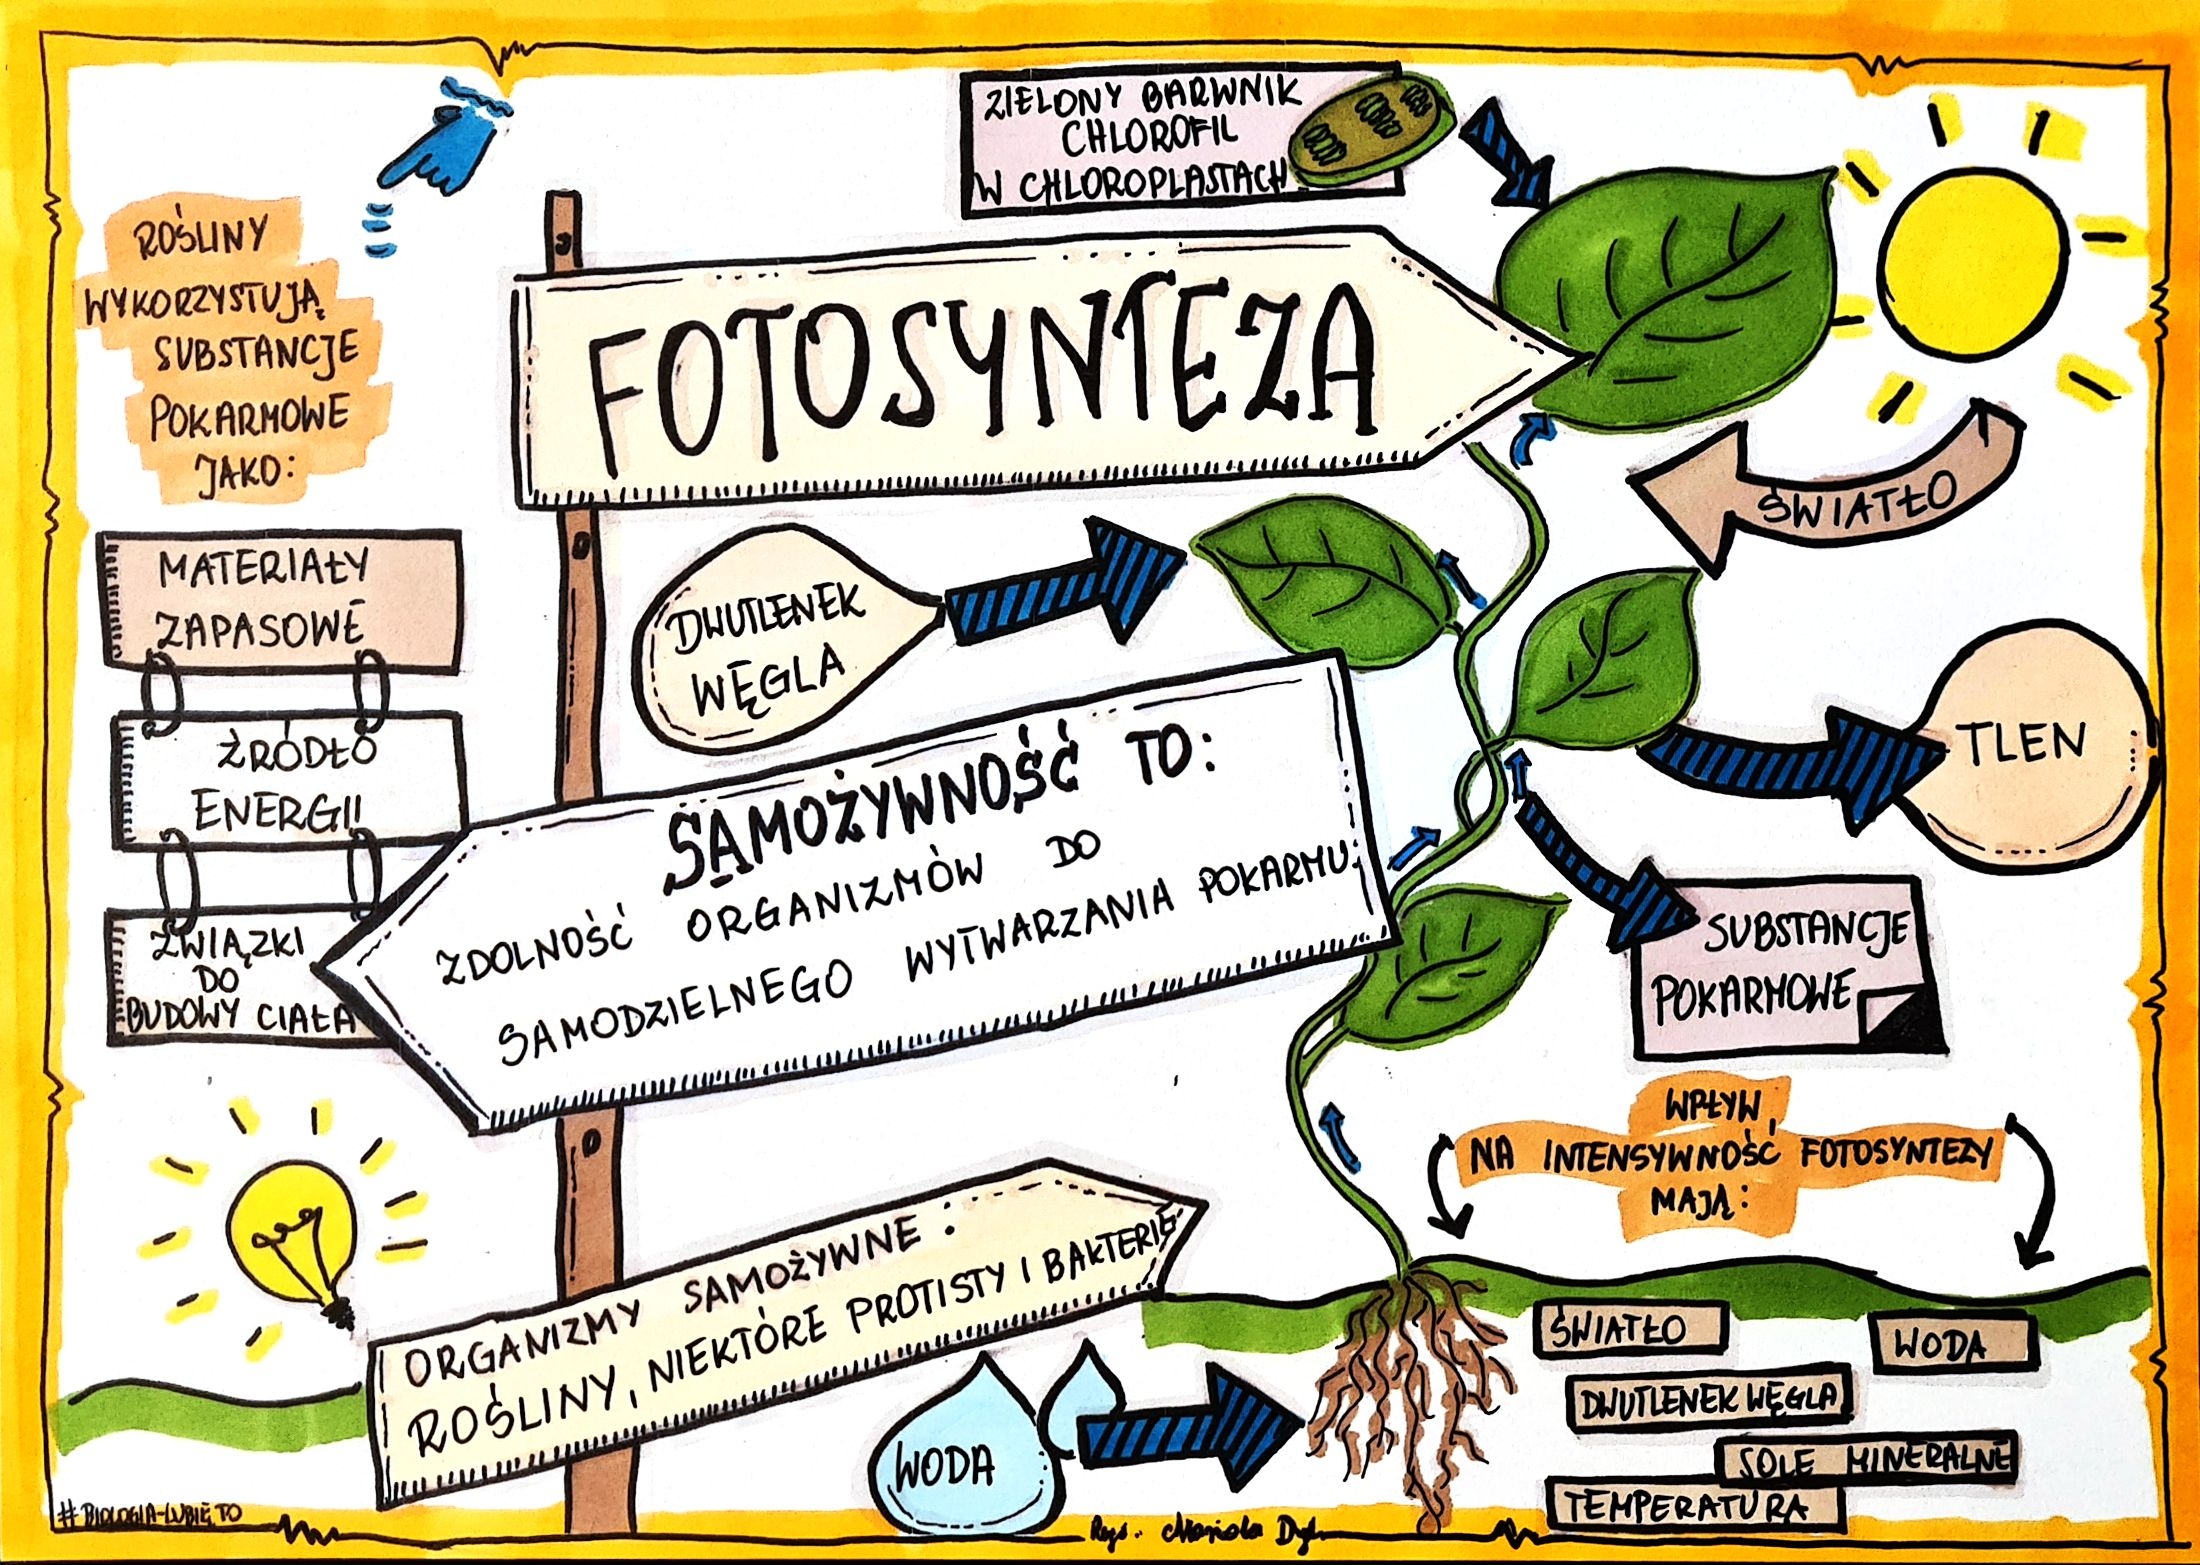 ZIELONY BARWNIK
CHLOROFIL
W CHLOROPLASTACH
ROŚLINY
WYKORZYSTUJĄ
SUBSTANCJE
POKARMOWE
JAKO:
FOTOSYNTEZA
ŚWIATŁO
MATERIAŁY
ZAPASOWE
ŹRÓDŁO
ENERGII
ZWIĄZKI
DO
BUDOWY CIAŁA
DWUTLENEK
WĘGLA
TLEN
SAMOŻYWNOŚĆ TO:
ZDOLNOŚĆ ORGANIZMÓW DO
SAMODZIELNEGO WYTWARZANIA POKARMU.
SUBSTANCJE
POKARMOWE
WPŁYW
NA INTENSYWNOŚĆ FOTOSYNTEZY
MAJĄ:
ORGANIZMY SAMOŻYWNE:
ROŚLINY, NIEKTÓRE PROTISTY I BAKTERIE
WODA
ŚWIATŁO
WODA
DWUTLENEK WĘGLA
SOLE MINERALNE
TEMPERATURA
#BIOLOGIA-LUBIĘTO
Rys.: Mariola